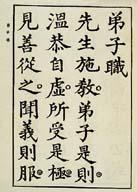 弟子職
先生施教弟子是則
溫恭自虛所受是極
見善從之聞義則服